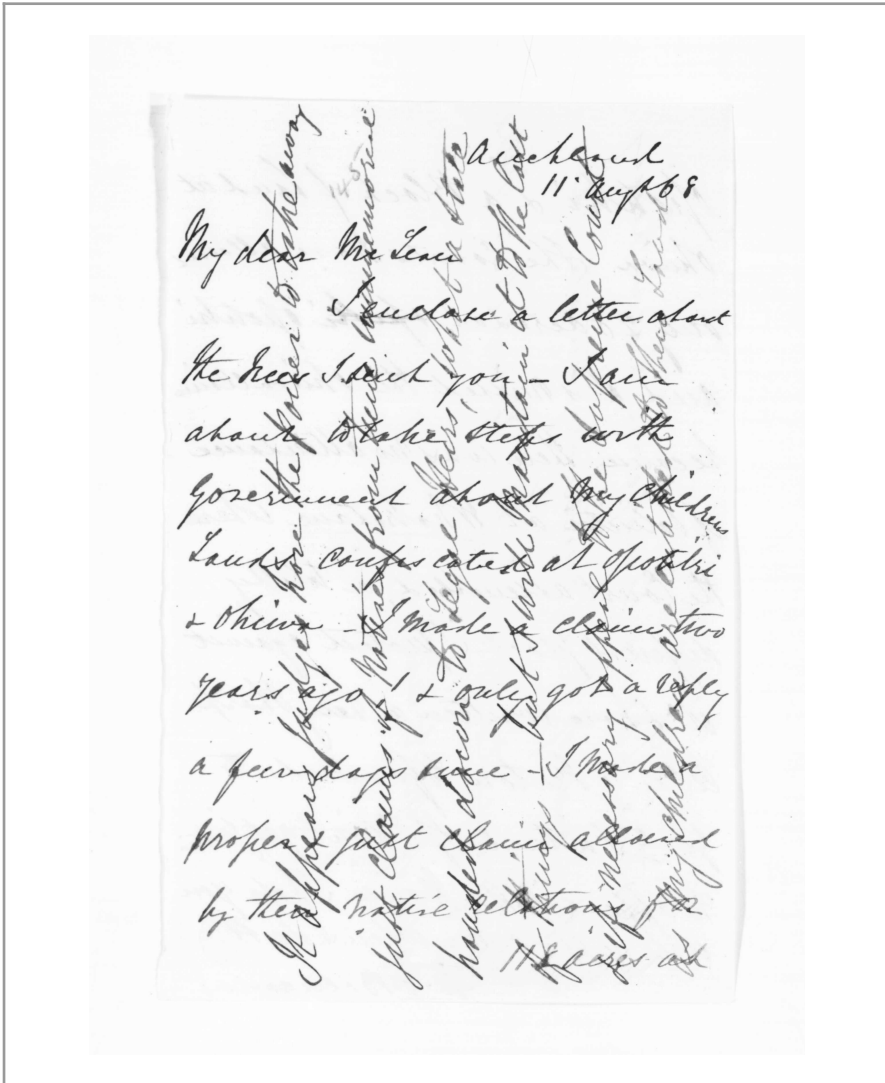 Auckland
11 Augt 68
My dear McLean
I enclose a letter about
the trees I sent you - I am
about to take steps with
Government about my childrens
Lands confiscated at Opotiki
& Ohiwa - I made a claim two
years ago! & only got a reply
a few days since - I made a
proper & just claim allowed
by their native relations for
118 acres at
It appears judges have the power to take away
just claims of Natives from time immemorial
handed down to Legal heirs! what a state
of things - but I will maintain it to the last
if necessary appeal to the Supreme Court
as my children are entitled to their Land